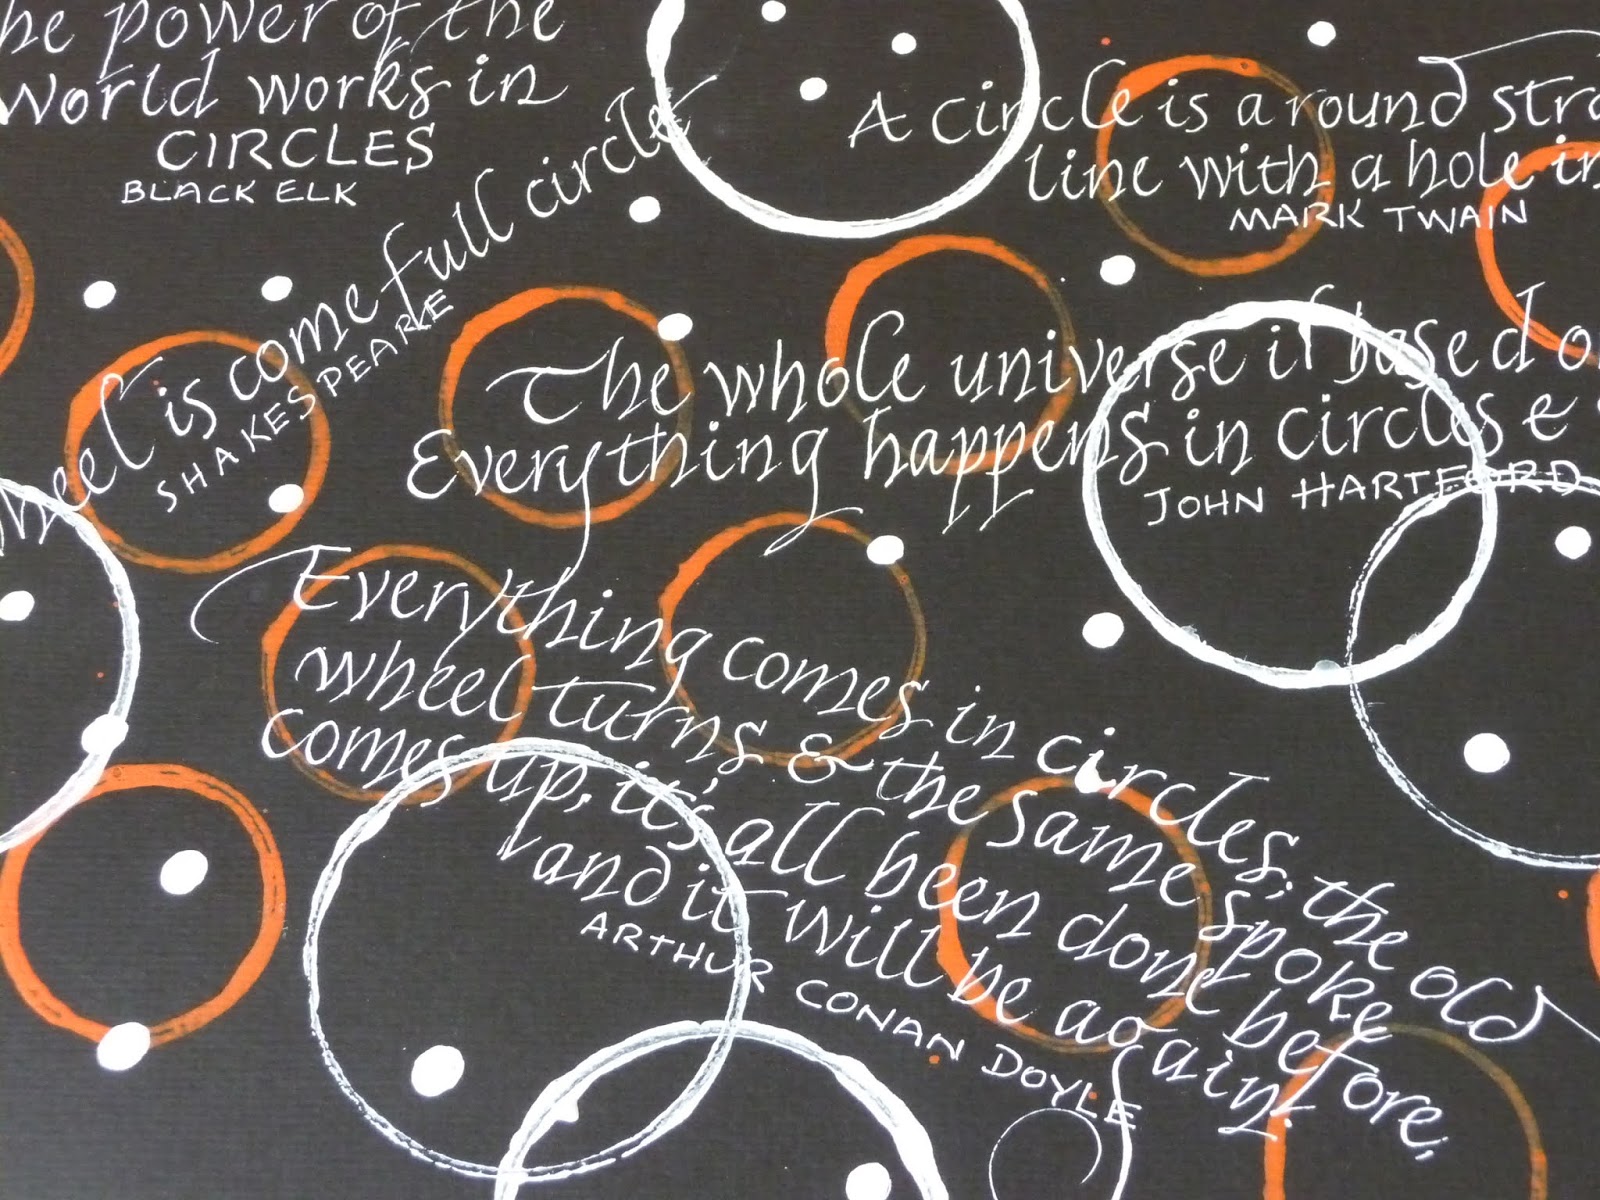 he power of the
World works in
CIRCLES
BLACK ELK
A circle is a round stra
line with a hole in
MARK TWAIN
wheel is come full circle
SHAKESPEARE
The whole universe is based o
Everything happens in circles &
JOHN HARTFORD
Everything comes in circles. the old
wheel turns & the same spoke
comes up, it's all been done before,
and it will be again.
ARTHUR CONAN DOYLE